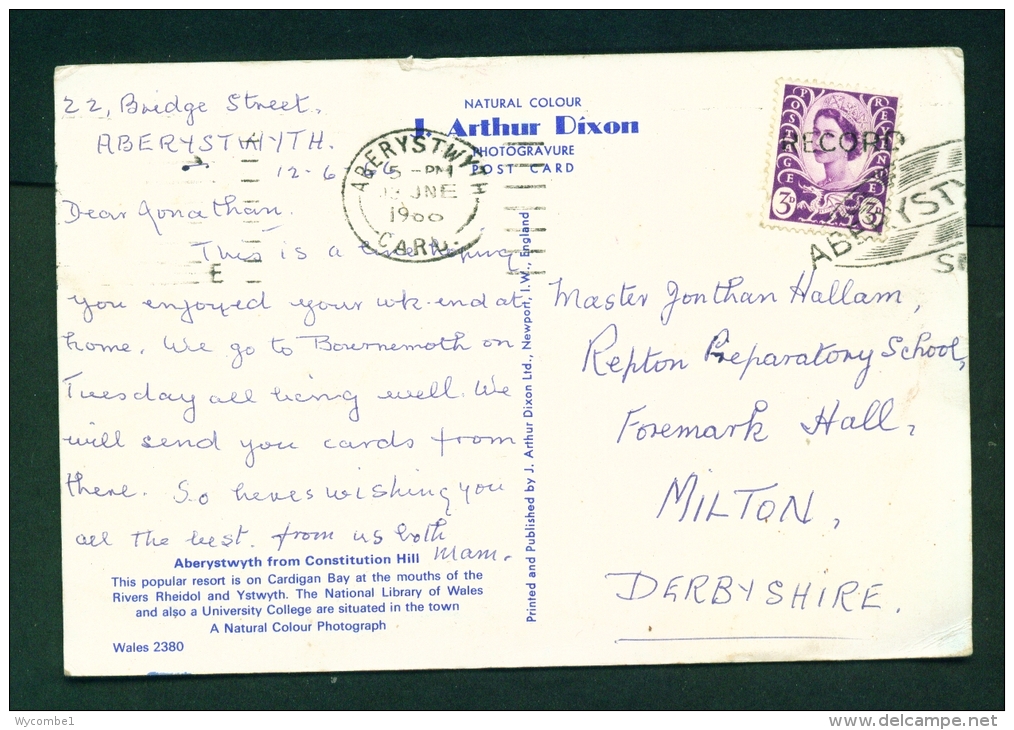 22, Bridge Street,
ABERYSTWYTH.
12-6
Dear Jonathan.
This is a line hoping
you enjoyed your wk-end at
home. We go to Bournemoth on
Tuesday all being well. We
will send you cards from
there. So heres wishing you
all the best. from us both
Mam.
Aberystwyth from Constitution Hill
This popular resort is on Cardigan Bay at the mouths of the
Rivers Rheidol and Ystwyth. The National Library of Wales
and also a University College are situated in the town
A Natural Colour Photograph
Wales 2380
NATURAL COLOUR
J. Arthur Dixon
PHOTOGRAVURE
POST CARD
ABERYSTWYTH
5 - PM
JNE
1966
CARD.
Printed and Published by J. Arthur Dixon Ltd., Newport, I.W., England
POSTAGE REVENUE
3D 3D
RECORD
ABERYSTWY
Master Jonthan Hallam,
Repton Preparatory School,
Foremark Hall,
MILTON,
DERBYSHIRE.
Wycombe1
www.delcampe.net